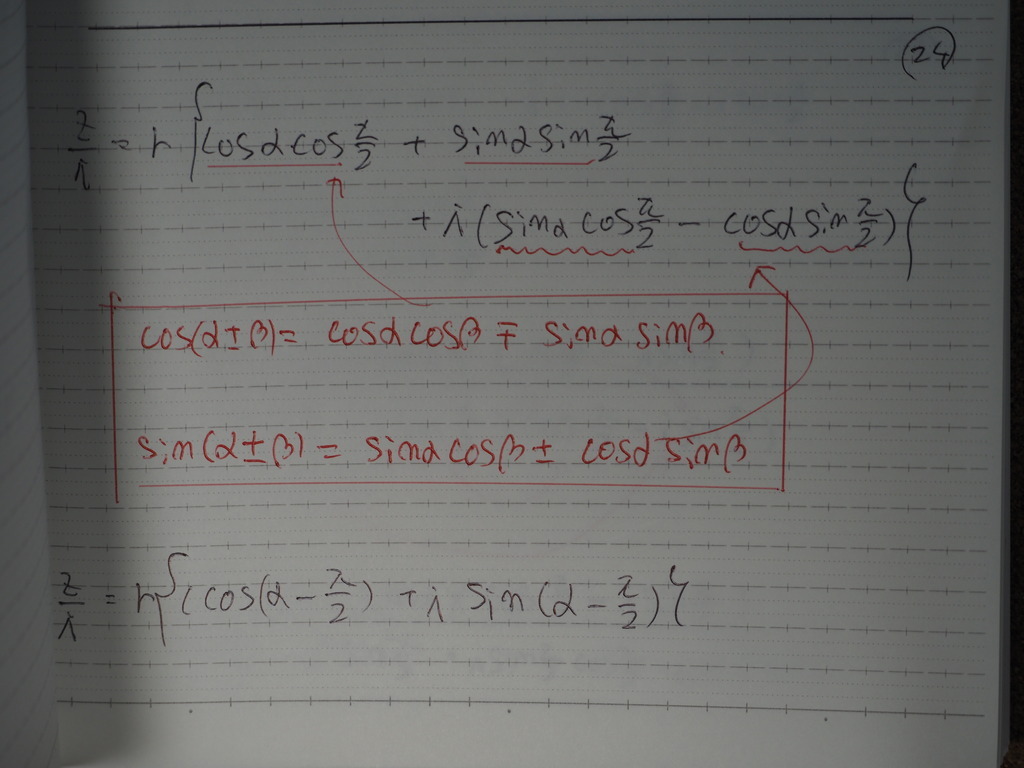 24
z/i = r { cosα cos π/2 + sinα sin π/2
+ i (sinα cos π/2 − cosα sin π/2) }
cos(α ± β) = cosα cosβ ∓ sinα sinβ.
sin(α ± β) = sinα cosβ ± cosα sinβ
z/i = r { (cos(α − π/2) + i sin (α − π/2) }